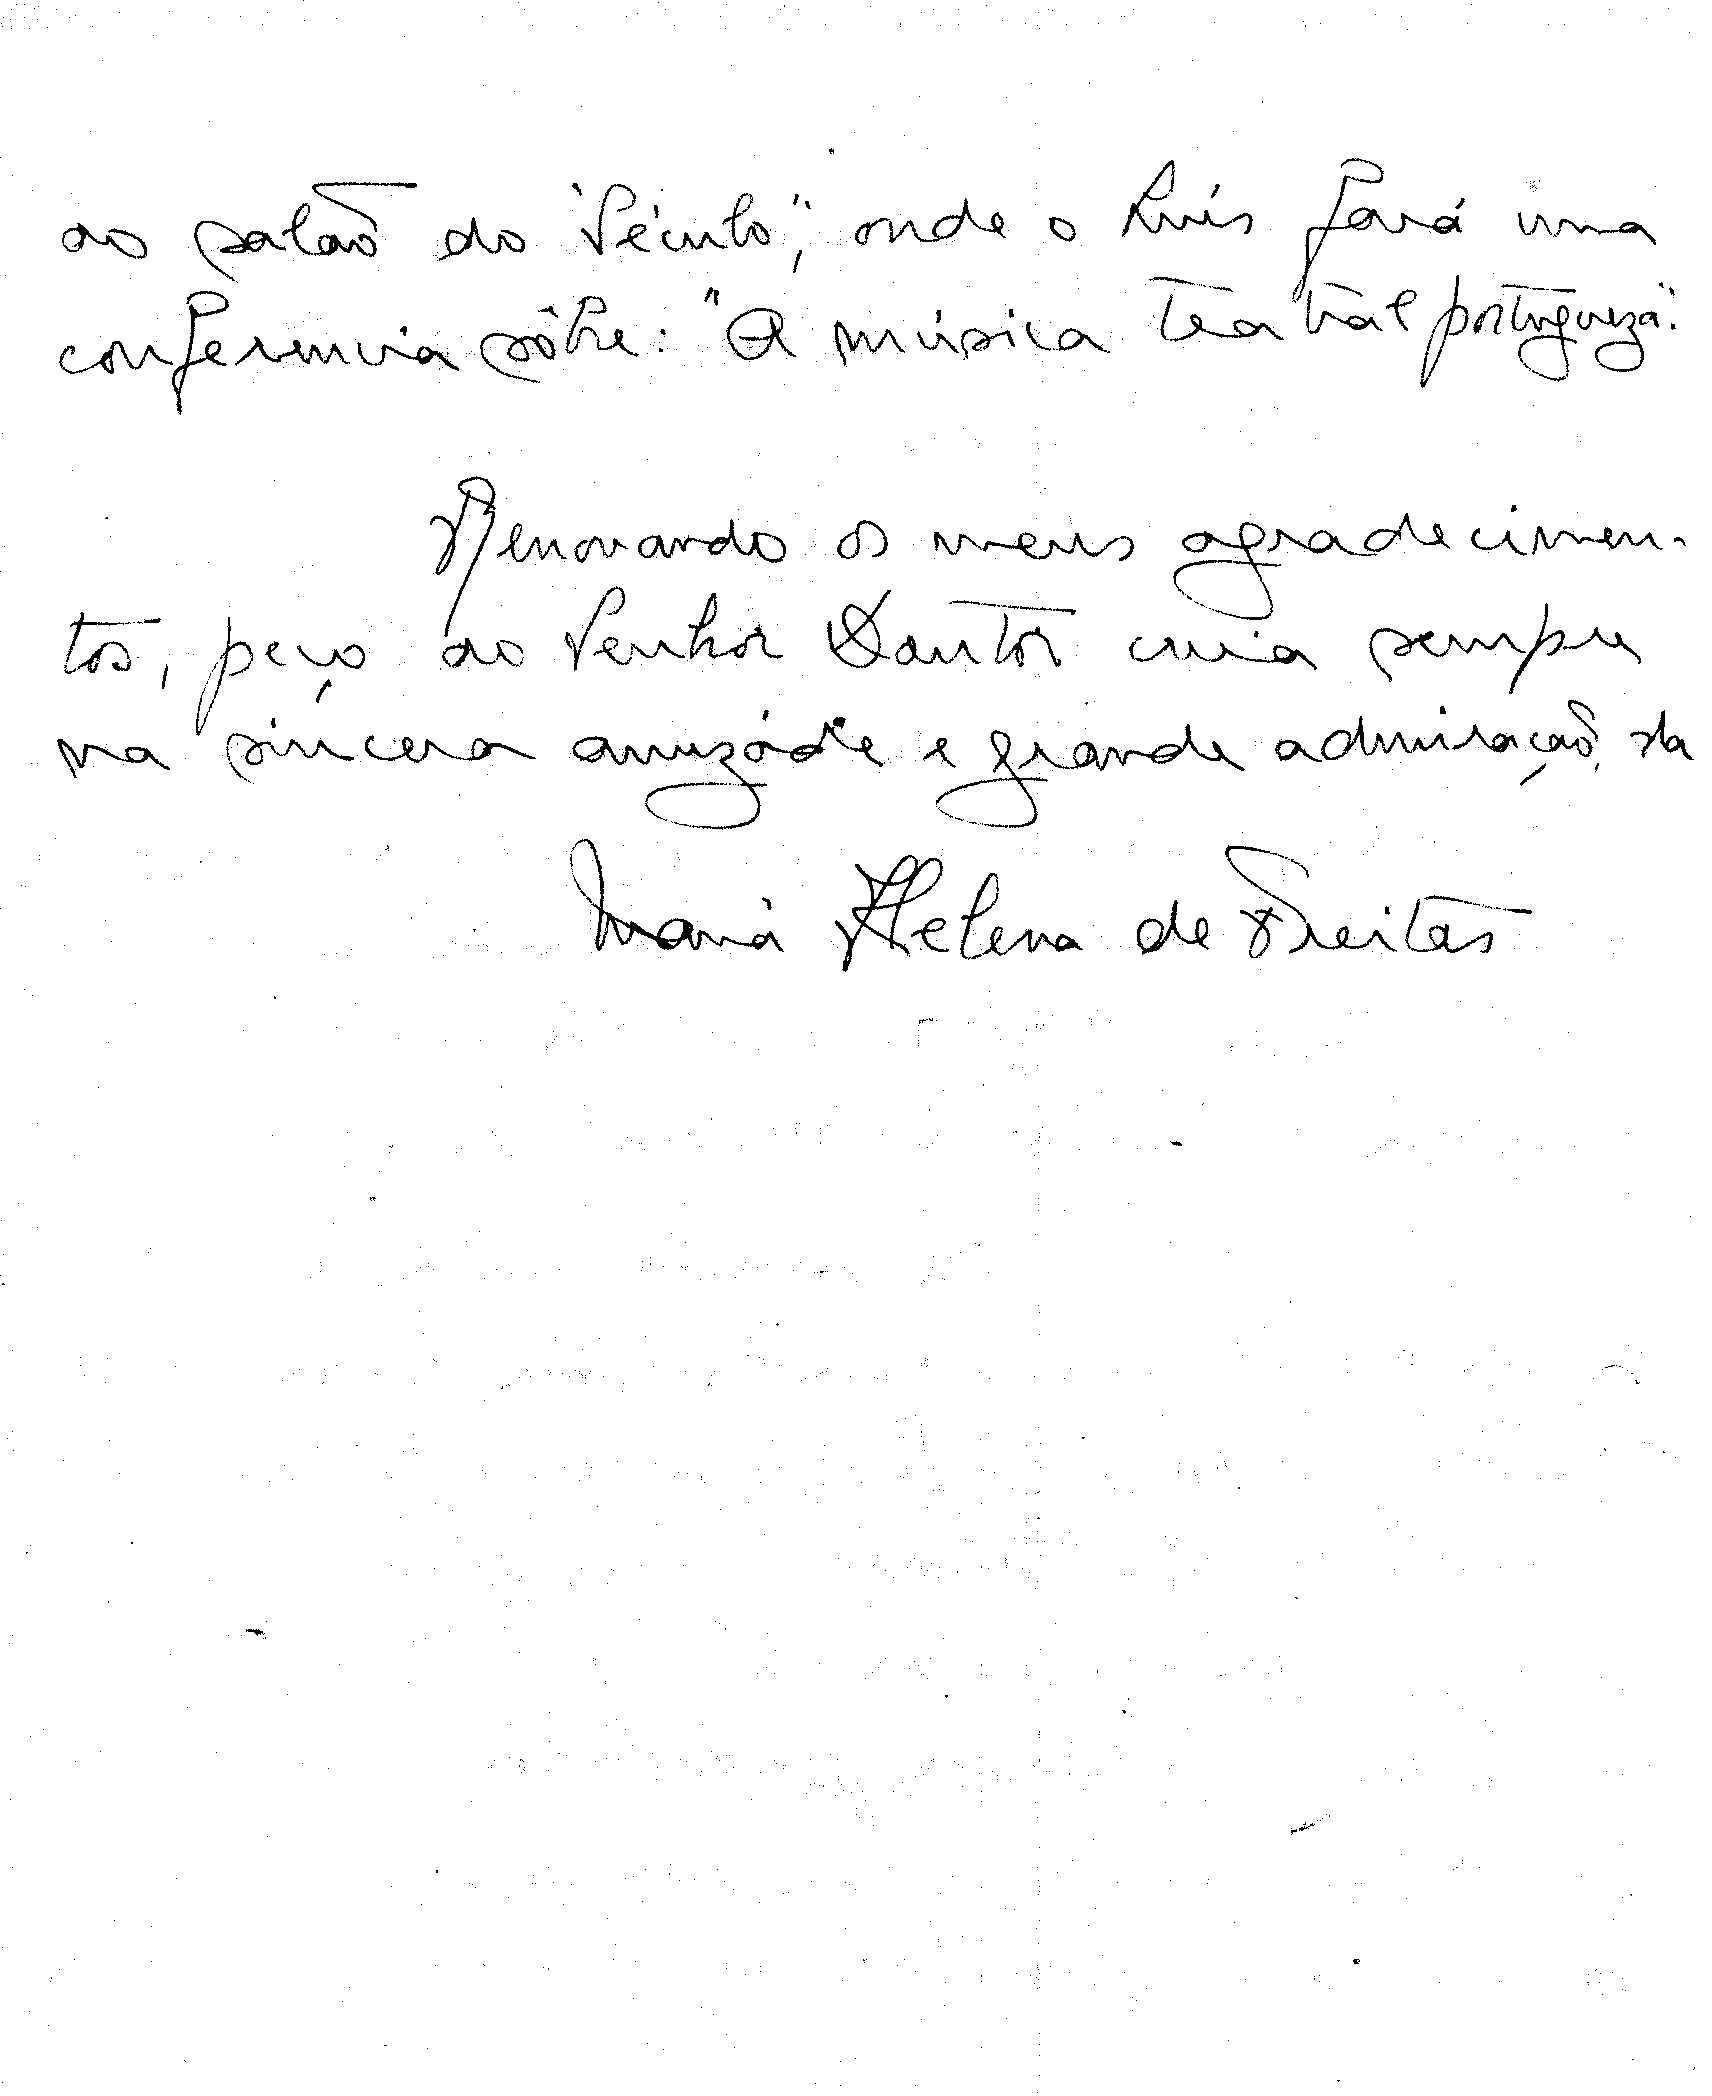 ao salão do "Século", onde o Luís fará uma
conferencia sôbre: "A música teatral portugueza".
Renovando os meus agradecimen-
tos, peço ao Senhor Doutor creia sempre
na sincera amizade e grande admiração da
Maria Helena de Freitas